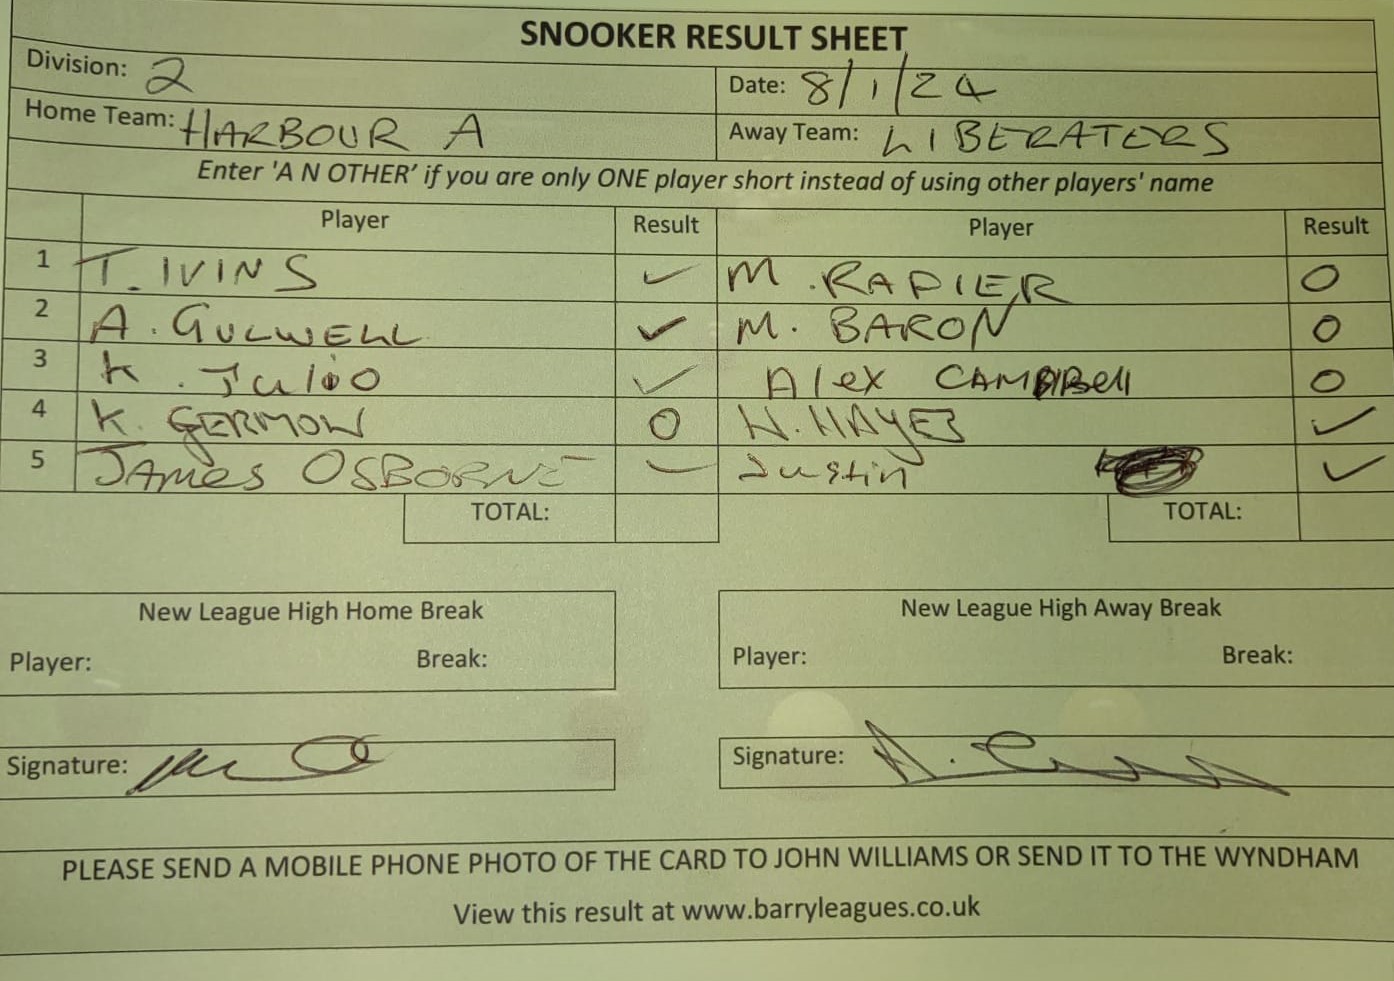 SNOOKER RESULT SHEET
Division: 2 Date: 8/1/24
Home Team: HARBOUR A Away Team: LIBERATORS
Enter 'A N OTHER' if you are only ONE player short instead of using other players' name
Player Result Player Result
1 T. IVINS ✓ M. RAPIER O
2 A. GULWELL ✓ M. BARON O
3 K. Julio ✓ Alex CAMPBell O
4 K. GERMON O N. HAYES ✓
5 JAMES OSBORNE ✓ Justin ✓
TOTAL: TOTAL:
New League High Home Break New League High Away Break
Player: Break: Player: Break:
Signature: Signature:
PLEASE SEND A MOBILE PHONE PHOTO OF THE CARD TO JOHN WILLIAMS OR SEND IT TO THE WYNDHAM
View this result at www.barryleagues.co.uk